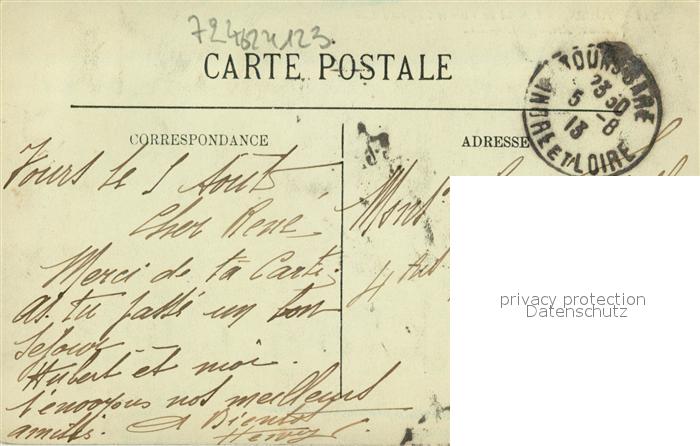 724624123
CARTE POSTALE
CORRESPONDANCE
ADRESSE
TOURS-GARE
23 30
5 -8
13
INDRE ET LOIRE
Tours le 5 Août
Cher René
Merci de ta Carte.
as tu passé un bon
Séjour
Hubert et moi
t'envoyons nos meilleurs
amitiés. A Bientôt
Monsr
4
privacy protection
Datenschutz